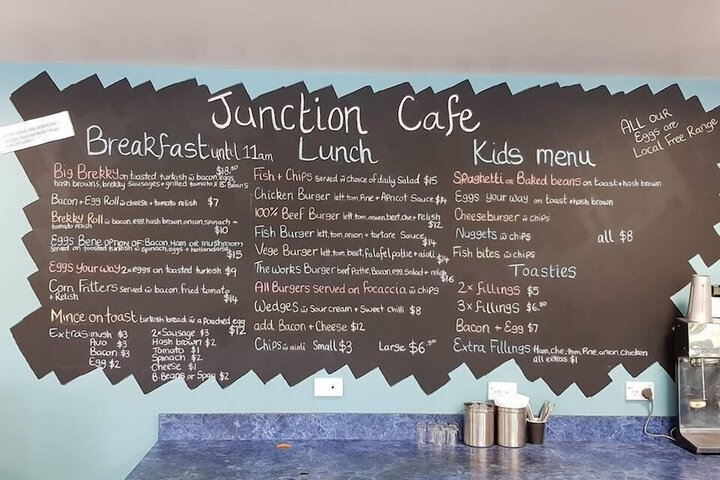 Junction Cafe
ALL our
Eggs are
Local Free Range
Breakfast until 11am
Big Brekky on toasted turkish w bacon, eggs, $18.50
hash browns, brekky sausages + grilled tomato, B Beans
Bacon + Egg Roll w cheese + tomato relish $7
Brekky Roll w bacon, egg, hash brown, onion, spinach +
tomato relish $10
Eggs Bene option of: Bacon, Ham or mushroom
served on toasted turkish w spinach, eggs + hollandaise $15
Eggs your way 2x eggs on toasted turkish $9
Corn Fitters served w bacon, fried tomato
+ Relish $14
Mince on toast turkish bread w a poached egg
$12
Extras mush $3
Avo $3
Bacon $3
Egg $2
2x Sausage $3
Hash brown $2
Tomato $1
Spinach $2
Cheese $1
B. Beans or Spag $2
Lunch
Fish + Chips served w choice of daily salad $15
Chicken Burger let, tom, Pine + Apricot Sauce $14
100% Beef Burger let, tom, onion, beet, che + Relish
$12
Fish Burger let, tom, onion + tartare Sauce
$14
Vege Burger let, tom, beet, Falafel pattie + aioli
$14
The Works Burger beef Pattie, Bacon, egg, Salad + relish
$16
All Burgers served on Focaccia w chips
Wedges w Sour cream + Sweet chilli $8
add Bacon + Cheese $12
Chips w aioli Small $3 Large $6.50
Kids menu
Spaghetti or Baked beans on toast + hash brown
Eggs your way on toast + hash brown
Cheeseburger w chips
Nuggets w chips all $8
Fish bites w chips
Toasties
2x fillings $5
3x fillings $6.50
Bacon + Egg $7
Extra Fillings Ham, Che, tom, Pine, onion, Chicken
all extras $1